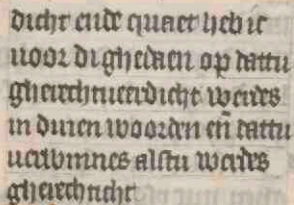 dicht ende quaet heb ic
uoor di ghedaen op dattu
gherechtueerdicht werdes
in dinen woorden eñ dattu
uerwinnes alstu werdes
gherechticht